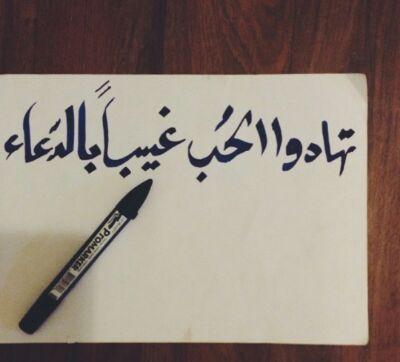 تهادوا الحُب غيباً بالدَعاء
PROMARKER